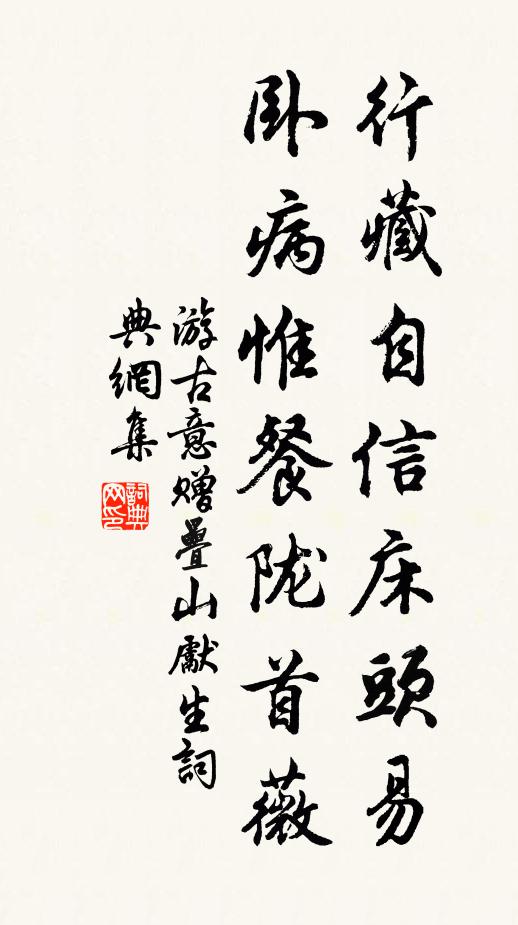 行藏自信床頭易
卧病惟餐陇首薇
游古意赠疊山獻生詞
典網集
詞典网印